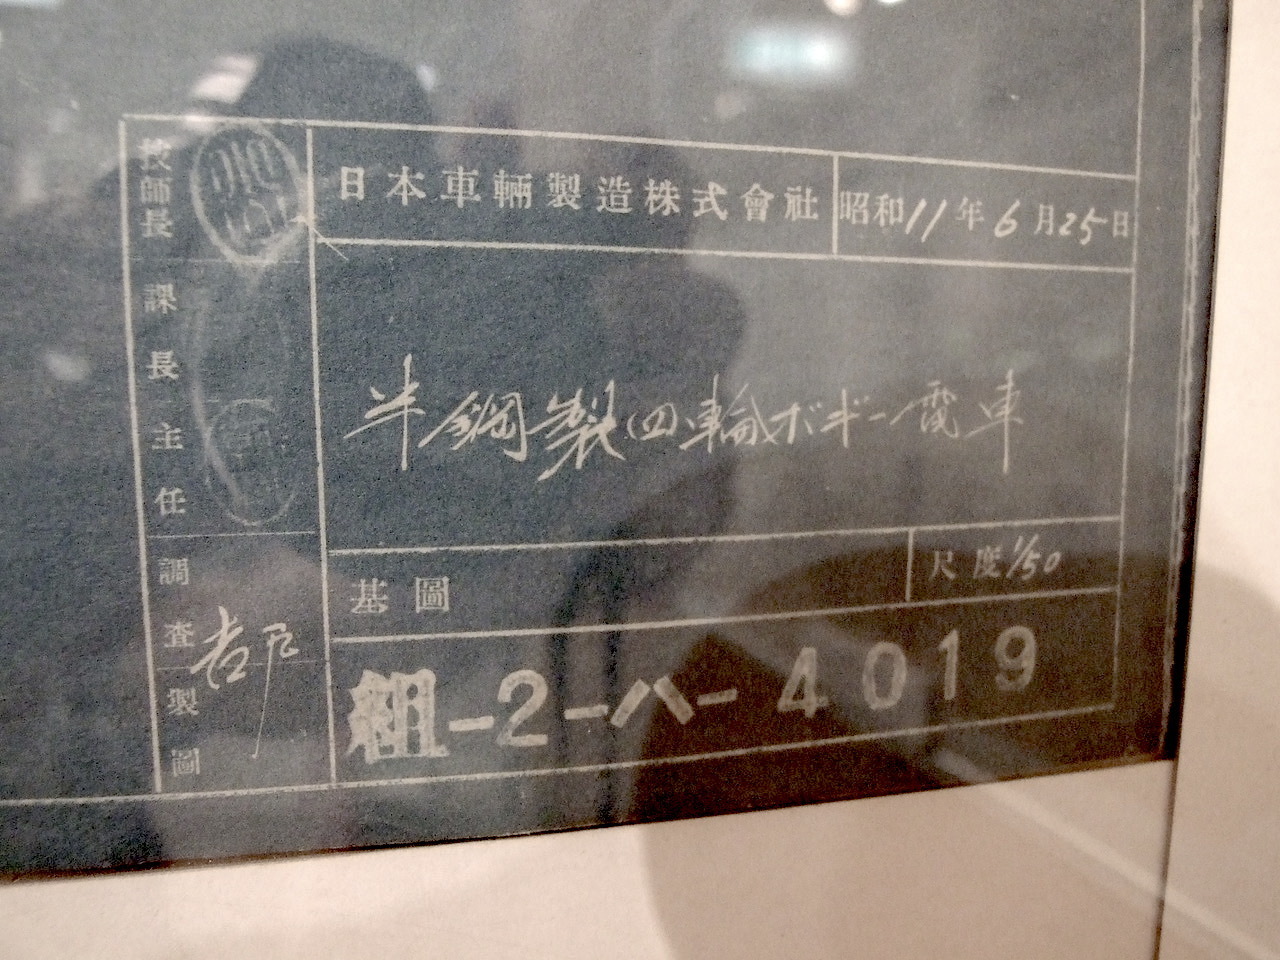 日本車輛製造株式會社
昭和11年6月25日
半鋼製四輪ボギー電車
基圖
尺度1/50
組-2-ハ-4019
技師長
課長
主任
調査
製圖